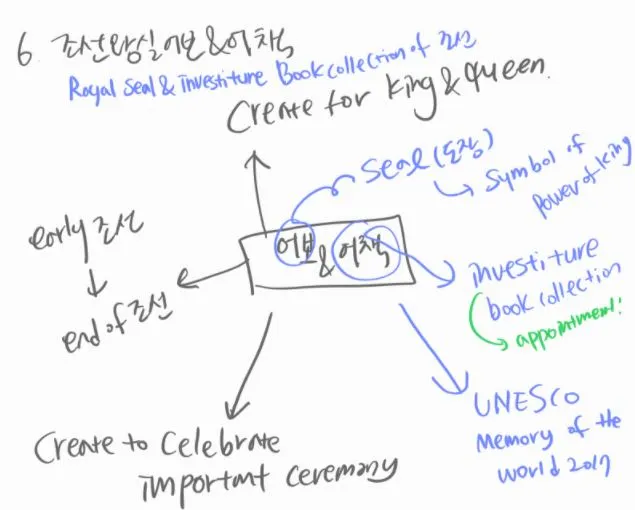 6 조선왕실어보&어책
Royal Seal & investiture Book collection of 조선
Create for King & Queen
Seal (도장)
Symbol of
Power of king
early 조선
어보 & 어책
end of 조선
investiture
book collection
appointment!
UNESCO
Memory of the
World 2017
Create to Celebrate
important ceremony